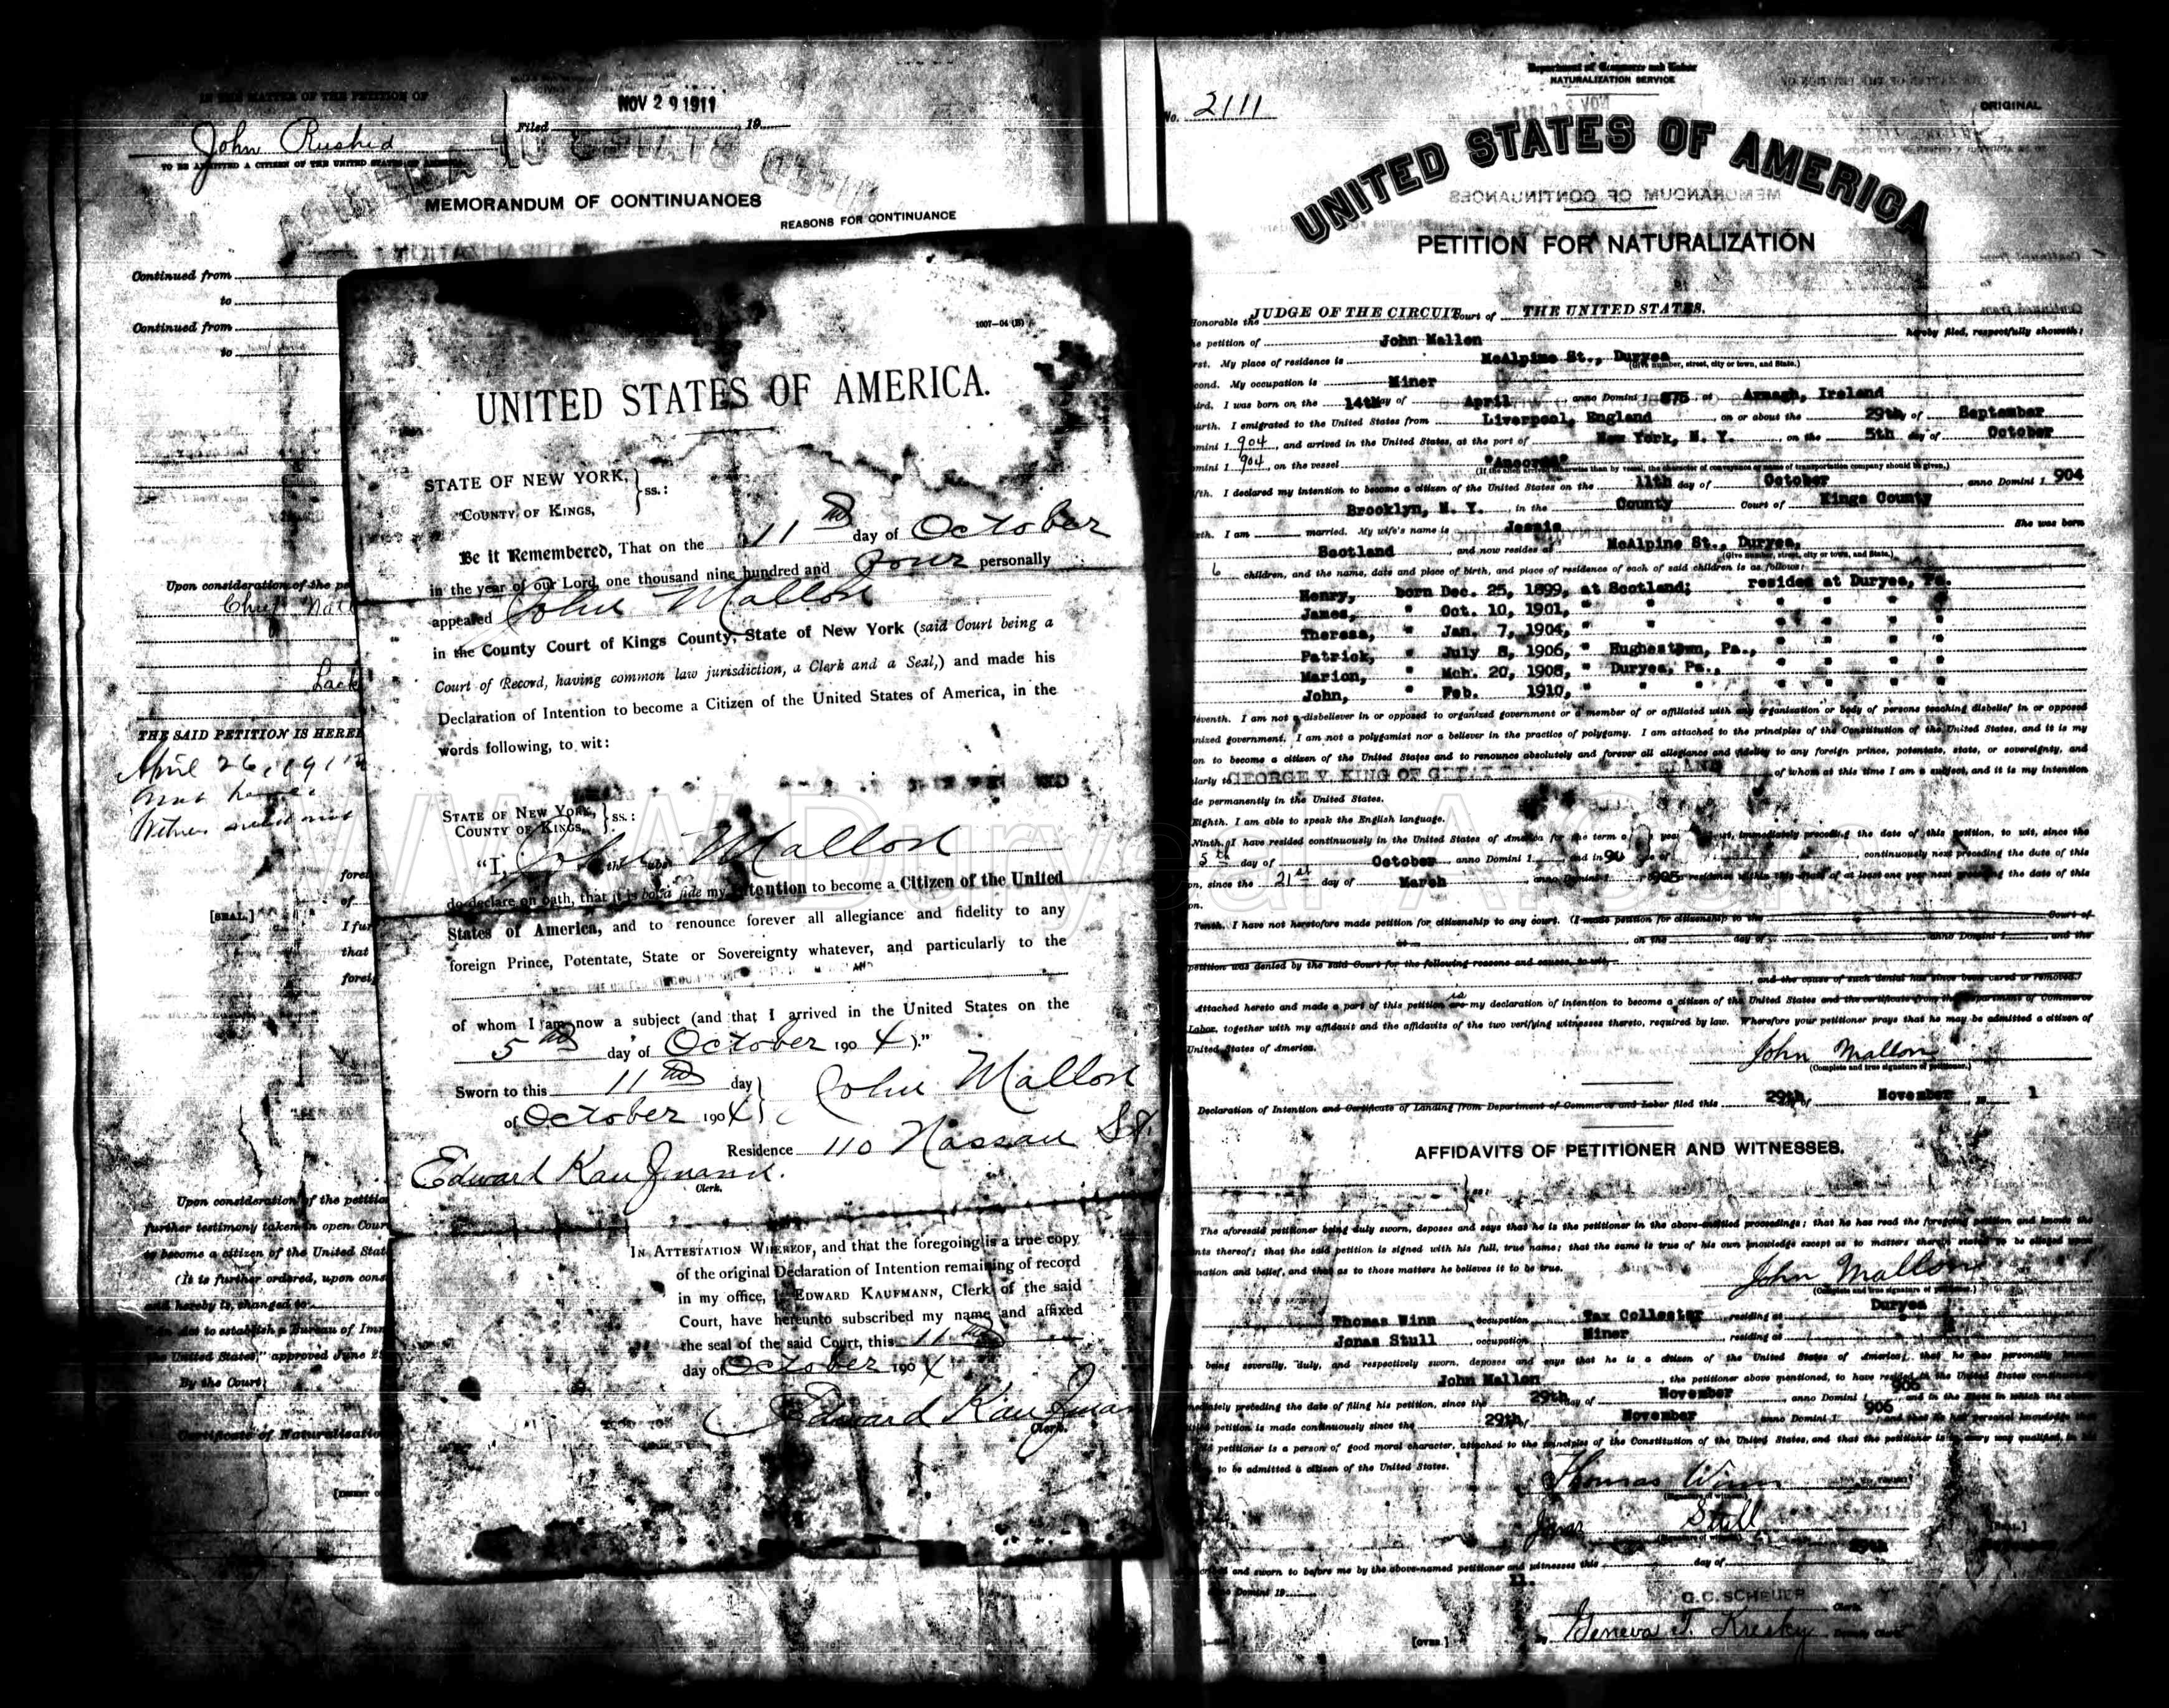 IN THE MATTER OF THE PETITION OF
John Rushid
TO BE ADMITTED A CITIZEN OF THE UNITED STATES OF AMERICA
Filed NOV 29 1911 19
MEMORANDUM OF CONTINUANCES
REASONS FOR CONTINUANCE
Continued from
to
Continued from
to
Upon consideration of the pe
Chief Nat
Lack
THE SAID PETITION IS HEREB
April 26, 191
not here
[SEAL.]
fore
of
I fur
that
foreig
Upon consideration of the petition
further testimony taken in open Cour
to become a citizen of the United Stat
(It is further ordered, upon cons
and hereby is, changed to
An Act to establish a Bureau of Imm
the United States," approved June 29
By the Court:
Certificate of Naturalizatio
1007-04 (B)
UNITED STATES OF AMERICA.
STATE OF NEW YORK, } ss.:
COUNTY OF KINGS,
Be it Remembered, That on the 11th day of October
in the year of our Lord one thousand nine hundred and four personally
appeared John Mallon
in the County Court of Kings County, State of New York (said Court being a
Court of Record, having common law jurisdiction, a Clerk and a Seal,) and made his
Declaration of Intention to become a Citizen of the United States of America, in the
words following, to wit:
STATE OF NEW YORK, } ss.:
COUNTY OF KINGS,
"I, John Mallon
do declare on oath, that it is bona fide my intention to become a Citizen of the United
States of America, and to renounce forever all allegiance and fidelity to any
foreign Prince, Potentate, State or Sovereignty whatever, and particularly to the
of whom I am now a subject (and that I arrived in the United States on the
5th day of October 1904)."
Sworn to this 11th day } John Mallon
of October 1904
Residence 110 Nassau St.
Edward Kaufmann.
Clerk.
IN ATTESTATION WHEREOF, and that the foregoing is a true copy
of the original Declaration of Intention remaining of record
in my office, I, EDWARD KAUFMANN, Clerk of the said
Court, have hereunto subscribed my name and affixed
the seal of the said Court, this 11th
day of October 1904
Edward Kaufmann
Clerk.
Department of Commerce and Labor
NATURALIZATION SERVICE
No. 2111
ORIGINAL
UNITED STATES OF AMERICA
PETITION FOR NATURALIZATION
Honorable the JUDGE OF THE CIRCUIT Court of THE UNITED STATES.
he petition of John Mallon hereby filed, respectfully showeth:
rst. My place of residence is McAlpine St., Duryea
(Give number, street, city or town, and State.)
cond. My occupation is Miner
ird. I was born on the 14th day of April, anno Domini 1 875, at Armagh, Ireland
urth. I emigrated to the United States from Liverpool, England on or about the 29th of September
mini 1 904, and arrived in the United States, at the port of New York, N. Y. on the 5th day of October
mini 1 904, on the vessel
(If the alien arrived otherwise than by vessel, the character of conveyance or name of transportation company should be given.)
fth. I declared my intention to become a citizen of the United States on the 11th day of October, anno Domini 1 904
Brooklyn, N. Y. in the County Court of Kings County
xth. I am married. My wife's name is Jessie She was born
Scotland, and now resides at McAlpine St., Duryea,
(Give number, street, city or town, and State.)
6 children, and the name, date and place of birth, and place of residence of each of said children is as follows:
Henry, born Dec. 25, 1899, at Scotland; resides at Duryea, Pa.
James, " Oct. 10, 1901, " " " " " "
Theresa, " Jan. 7, 1904, " " " " " "
Patrick, " July 8, 1906, " Hughestown, Pa., " " " "
Marion, " Mch. 20, 1908, " Duryea, Pa., " " " "
John, " Feb. 1910, " " " " " " "
eventh. I am not a disbeliever in or opposed to organized government or a member of or affiliated with any organization or body of persons teaching disbelief in or opposed
nized government. I am not a polygamist nor a believer in the practice of polygamy. I am attached to the principles of the Constitution of the United States, and it is my
on to become a citizen of the United States and to renounce absolutely and forever all allegiance and fidelity to any foreign prince, potentate, state, or sovereignty, and
larly to GEORGE V. KING OF of whom at this time I am a subject, and it is my intention
de permanently in the United States.
Eighth. I am able to speak the English language.
Ninth. I have resided continuously in the United States of America for the term of year at least, immediately preceding the date of this petition, to wit, since the
5th day of October anno Domini 1 and in continuously next preceding the date of this
on, since the 21st day of March, anno Domini 1 905 a residence within this State of at least one year next preceding the date of this
on.
Tenth. I have not heretofore made petition for citizenship to any court. (I made petition for citizenship to the Court of
at on the day of anno Domini 1 and the
petition was denied by the said Court for the following reasons and causes, to wit,
and the cause of such denial has since been cured or removed.)
Attached hereto and made a part of this petition are is my declaration of intention to become a citizen of the United States and the certificate from the Department of Commerce
Labor, together with my affidavit and the affidavits of the two verifying witnesses thereto, required by law. Wherefore your petitioner prays that he may be admitted a citizen of
United States of America.
John Mallon
(Complete and true signature of petitioner.)
Declaration of Intention and Certificate of Landing from Department of Commerce and Labor filed this 29th day of November 1
AFFIDAVITS OF PETITIONER AND WITNESSES.
The aforesaid petitioner being duly sworn, deposes and says that he is the petitioner in the above-entitled proceedings; that he has read the foregoing petition and knows the
nts thereof; that the said petition is signed with his full, true name; that the same is true of his own knowledge except as to matters therein stated to be alleged upon
mation and belief, and that as to those matters he believes it to be true.
John Mallon
(Complete and true signature of petitioner.)
Thomas Winn, occupation Tax Collector, residing at Duryea
Jonas Stull, occupation Miner, residing at
being severally, duly, and respectively sworn, deposes and says that he is a citizen of the United States of America; that he has personally known
John Mallon, the petitioner above mentioned, to have resided in the United States continuously
mediately preceding the date of filing his petition, since the 29th day of November, anno Domini 1 906 and in the State in which the above-
petition is made continuously since the 29th of November anno Domini 1 906, and that he has personal knowledge that
petitioner is a person of good moral character, attached to the principles of the Constitution of the United States, and that the petitioner is in every way qualified, in his
to be admitted a citizen of the United States.
Thomas Winn
(Signature of witness.)
Jonas Stull
(Signature of witness.)
and sworn to before me by the above-named petitioner and witnesses this 29th day of
Domini 19 11.
G. C. SCHEUER
Clerk.
[OVER.]
By Geneva T. Kresky Deputy Clerk.
WWW.DuryeaPA.Com